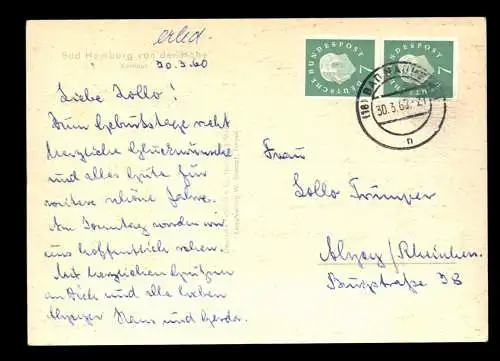 erled.
Bad Homburg von der Höhe
Kurhaus
30.3.60
Liebe Lollo!
Zum Geburtstage recht
herzliche Glückwünsche
und alles Gute für
weitere schöne Jahre.
Am Sonntag werden wir
uns hoffentlich sehen.
Mit herzlichen Grüßen
an Dich und alle lieben
Alzeyer Hans und Gerda.
DEUTSCHE BUNDESPOST
7
DEUTSCHE BUNDESPOST
7
(16) BAD NAUHEIM
30.3.60-21
n
Frau
Lollo Trümper
Alzey/Rheinhessen.
Burgstraße 38